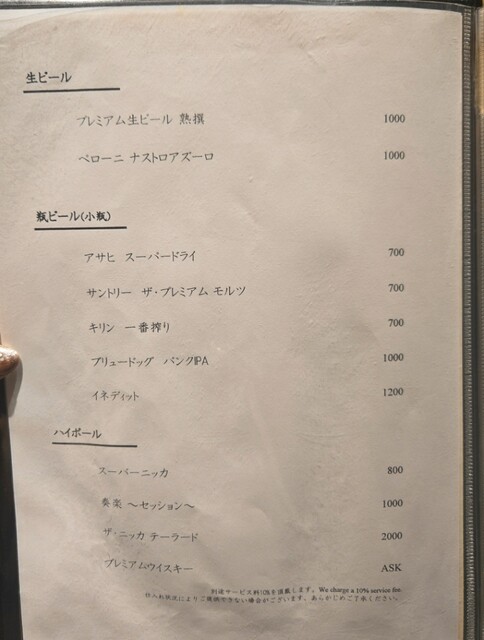 生ビール
プレミアム生ビール 熟撰 1000
ペローニ ナストロアズーロ 1000
瓶ビール(小瓶)
アサヒ スーパードライ 700
サントリー ザ・プレミアム モルツ 700
キリン 一番搾り 700
ブリュードッグ パンクIPA 1000
イネディット 1200
ハイボール
スーパーニッカ 800
奏楽 ～セッション～ 1000
ザ・ニッカ テーラード 2000
プレミアムウイスキー ASK
別途サービス料10%を頂戴します。We charge a 10% service fee.
仕入れ状況によりご提供できない場合がございます。あらかじめご了承ください。